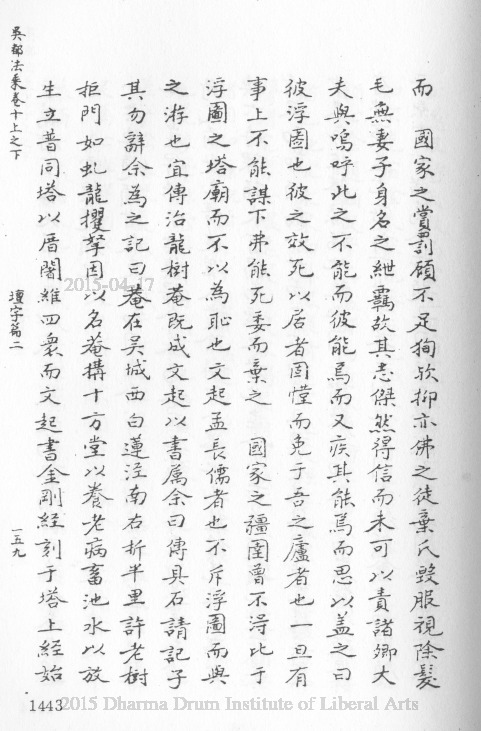 而　國家之賞罰顧不足狥欤抑亦佛之徒棄氏毀服視除髮
毛無妻子身名之紲羈故其志傑然得信而未可以責諸卿大
夫與嗚呼此之不能而彼能焉而又疾其能焉而思以蓋之曰
彼浮圖也彼之效死以居者固慌而免于吾之廬者也一旦有
事上不能謀下弗能死委而棄之　國家之疆圉曾不浔比于
浮圖之塔廟而不以為恥也文起孟長儒者也不斥浮圖而與
之游也宜傳治龍樹菴既成文起以書属余曰傳具石請記子
其勿辭余為之記曰菴在吴城西白蓮涇南右折半里許老樹
拒門如虬龍攫拏因以名菴搆十方堂以養老病畜池水以放
生立普同塔以厝闍維四衆而文起書金剛經刻于塔上經始
吳都法乘卷十上之下
壇宇篇二
一五九
1443
2015-04-17
2015 Dharma Drum Institute of Liberal Arts